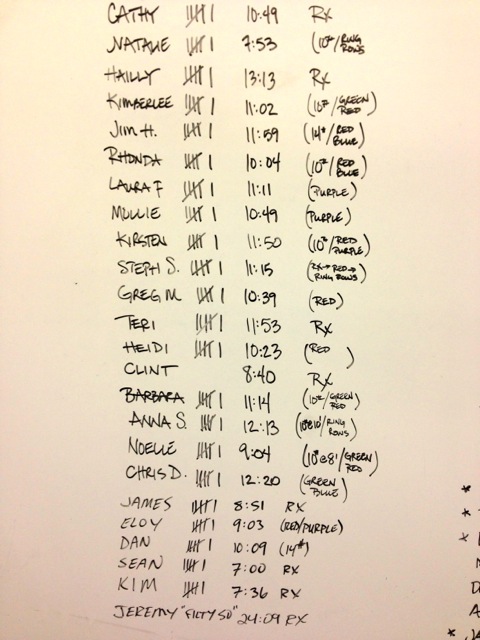 CATHY 卌 I 10:49 RX
NATALIE 卌 I 7:53 (10#/RING ROWS
HAILLY 卌 I 13:13 RX
KIMBERLEE 卌 I 11:02 (10#/GREEN RED)
JIM H. 卌 I 11:59 (14#/RED BLUE)
RHONDA 卌 I 10:04 (10#/RED BLUE)
LAURA F 卌 I 11:11 (PURPLE)
MOLLIE 卌 I 10:49 (PURPLE)
KIRSTEN 卌 I 11:50 (10#/RED PURPLE)
STEPH S. 卌 I 11:15 (RX→RED→ RING ROWS)
GREG M 卌 I 10:39 (RED)
TERI 卌 I 11:53 RX
HEIDI 卌 I 10:23 (RED )
CLINT 8:40 RX
BARBARA 卌 I 11:14 (10#/GREEN RED)
ANNA S. 卌 I 12:13 (10#@10'/RING ROWS)
NOELLE 卌 I 9:04 (10#@8'/GREEN RED)
CHRIS D. 卌 I 12:20 (GREEN BLUE)
JAMES 卌 I 8:51 RX
ELOY 卌 I 9:03 (RED/PURPLE)
DAN 卌 I 10:09 (14#)
SEAN 卌 I 7:00 RX
KIM 卌 I 7:36 RX
JEREMY "FILTY 50" 24:09 RX